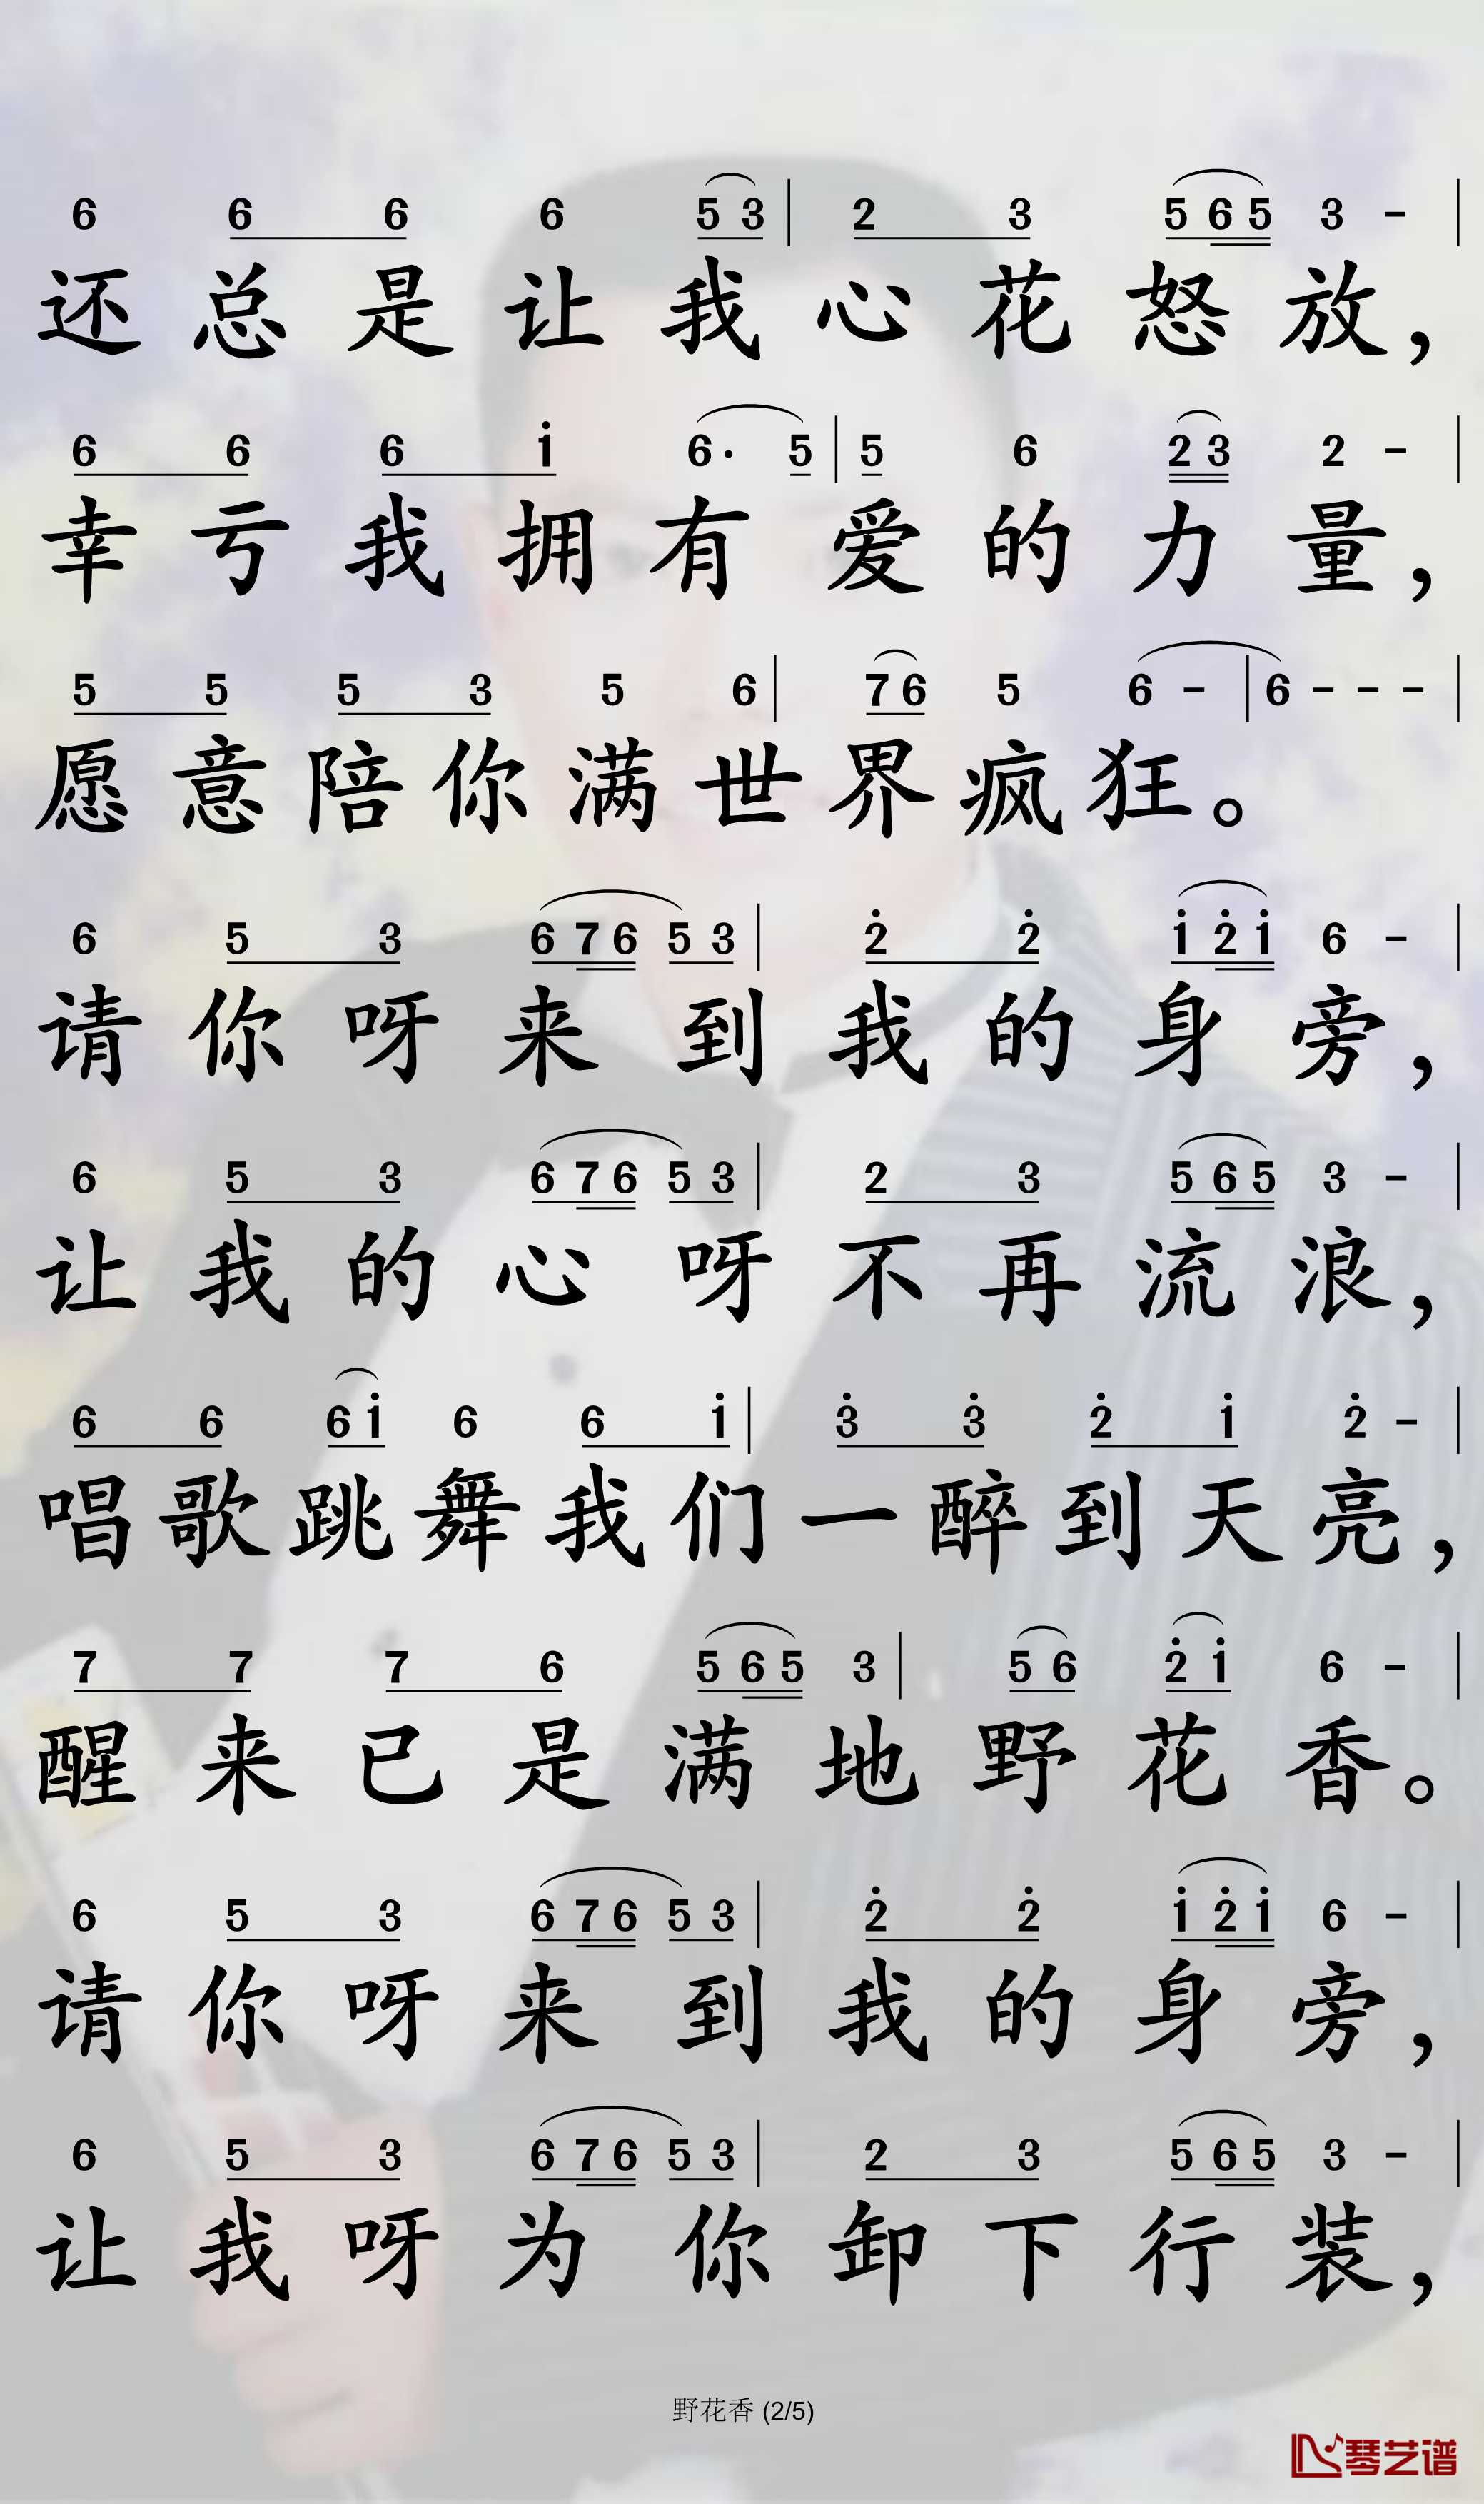 6 6 6 6 5 3 | 2 3 5 6 5 3 - |
还总是让我心花怒放，
6 6 6 i 6· 5 | 5 6 2 3 2 - |
幸亏我拥有爱的力量，
5 5 5 3 5 6 | 7 6 5 6 - | 6 - - - |
愿意陪你满世界疯狂。
6 5 3 6 7 6 5 3 | 2̇ 2̇ i 2̇ i 6 - |
请你呀来到我的身旁，
6 5 3 6 7 6 5 3 | 2 3 5 6 5 3 - |
让我的心呀不再流浪，
6 6 6 i 6 6 i | 3̇ 3̇ 2̇ i 2̇ - |
唱歌跳舞我们一醉到天亮，
7 7 7 6 5 6 5 3 | 5 6 2̇ i 6 - |
醒来已是满地野花香。
6 5 3 6 7 6 5 3 | 2̇ 2̇ i 2̇ i 6 - |
请你呀来到我的身旁，
6 5 3 6 7 6 5 3 | 2 3 5 6 5 3 - |
让我呀为你卸下行装，
野花香 (2/5)
琴艺谱